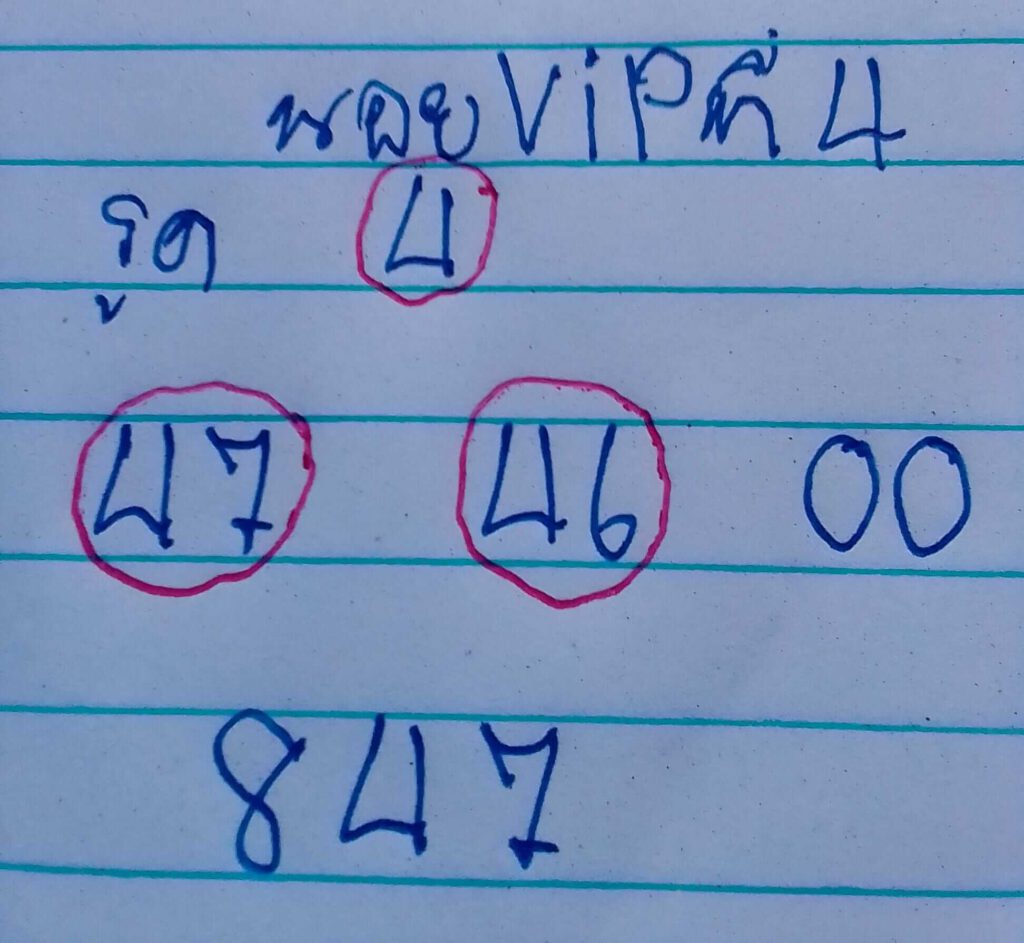 หวย VIP ที่ 4
รูด 4
47 46 00
847